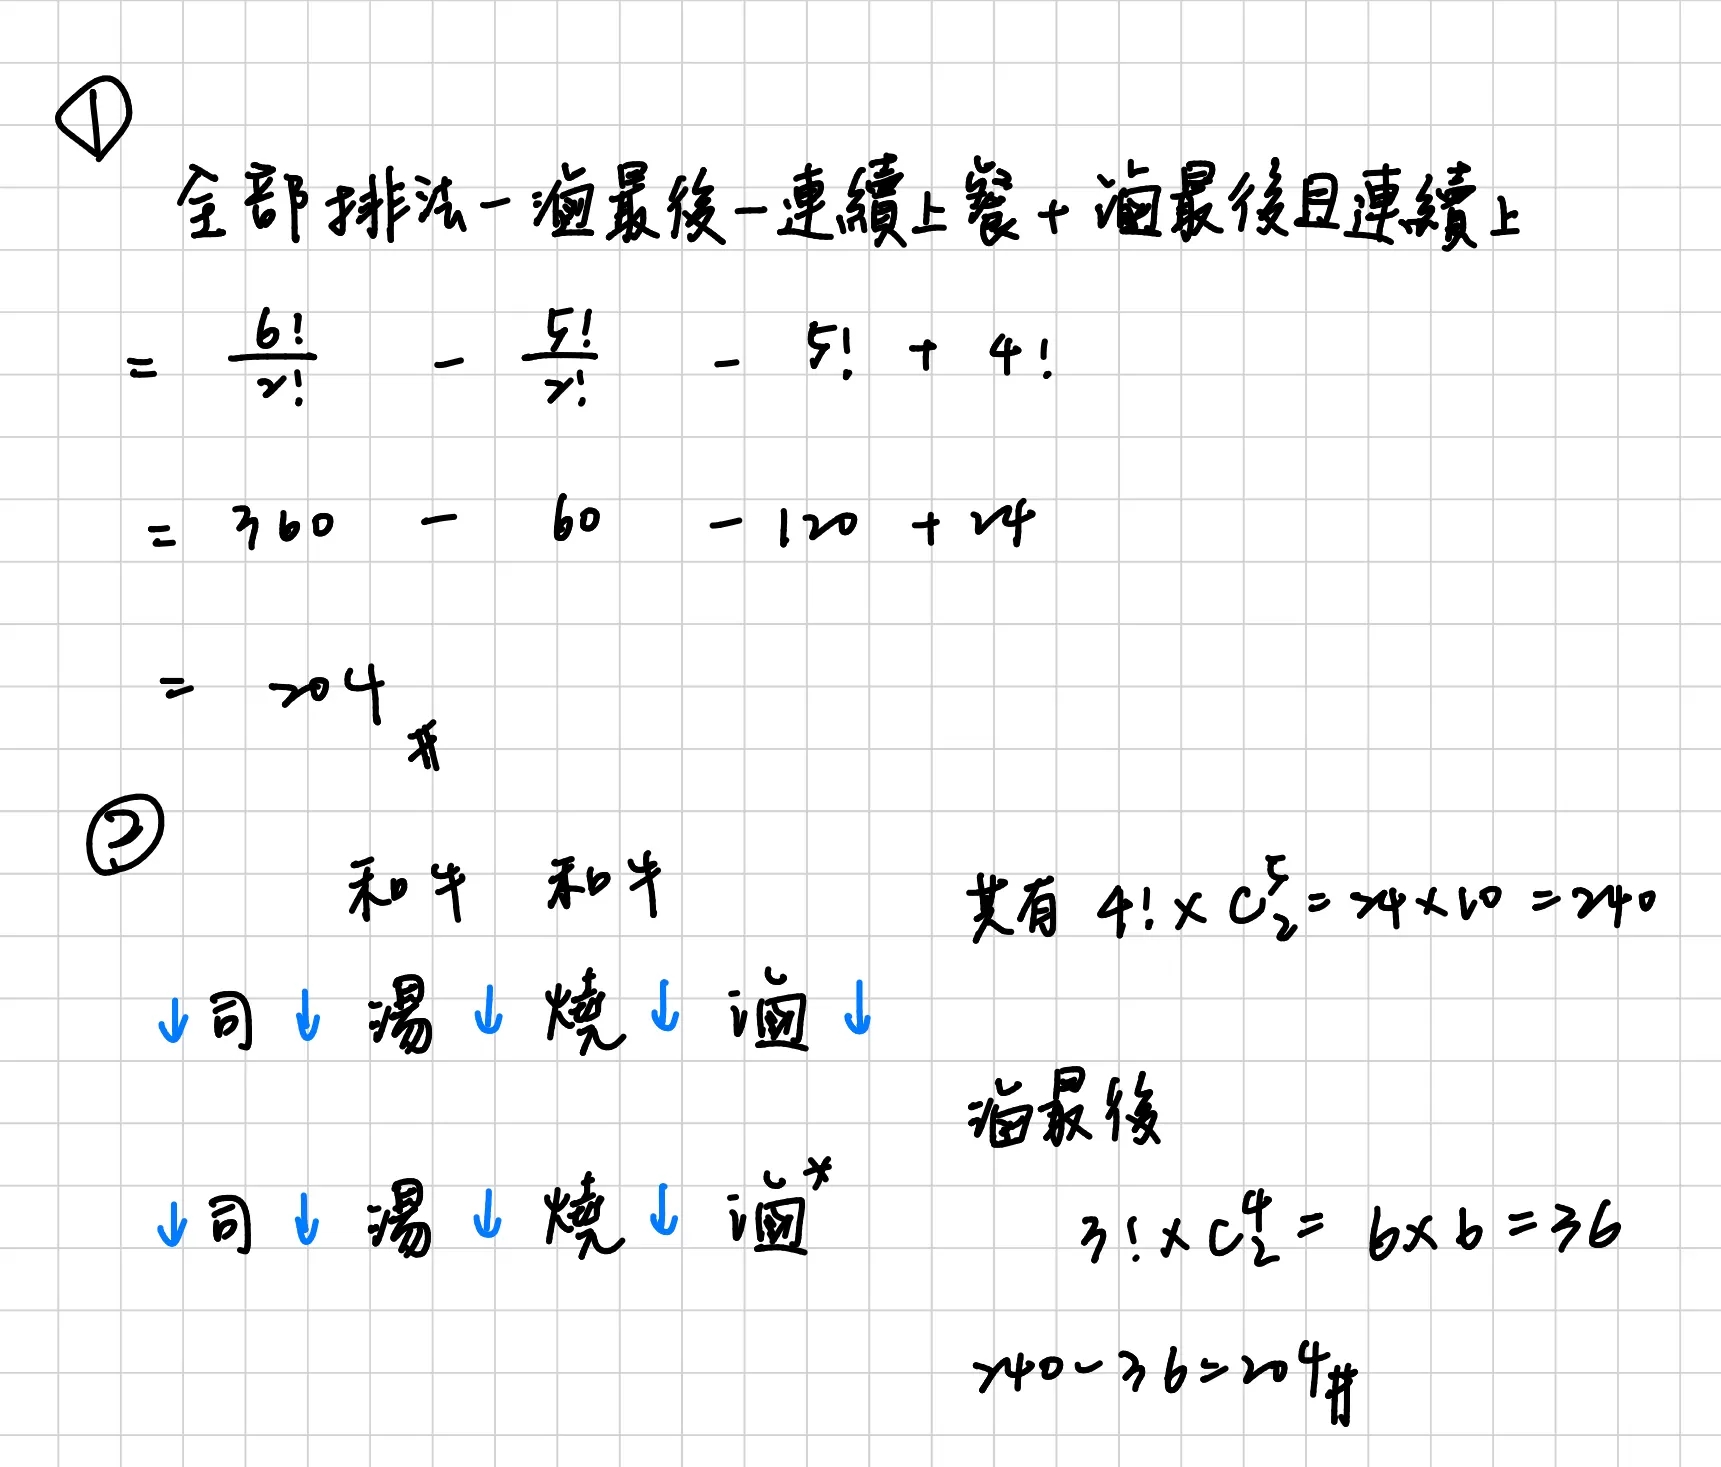 ①
全部排法-滷最後-連續上餐+滷最後且連續上
= 6!/2! - 5!/2! - 5! + 4!
= 360 - 60 - 120 + 24
= 204 #
②
和牛 和牛
↓司↓湯↓燒↓滷↓
↓司↓湯↓燒↓滷*
共有 4! × C⁵₂ = 24 × 10 = 240
滷最後
3! × C⁴₂ = 6 × 6 = 36
240 - 36 = 204 #